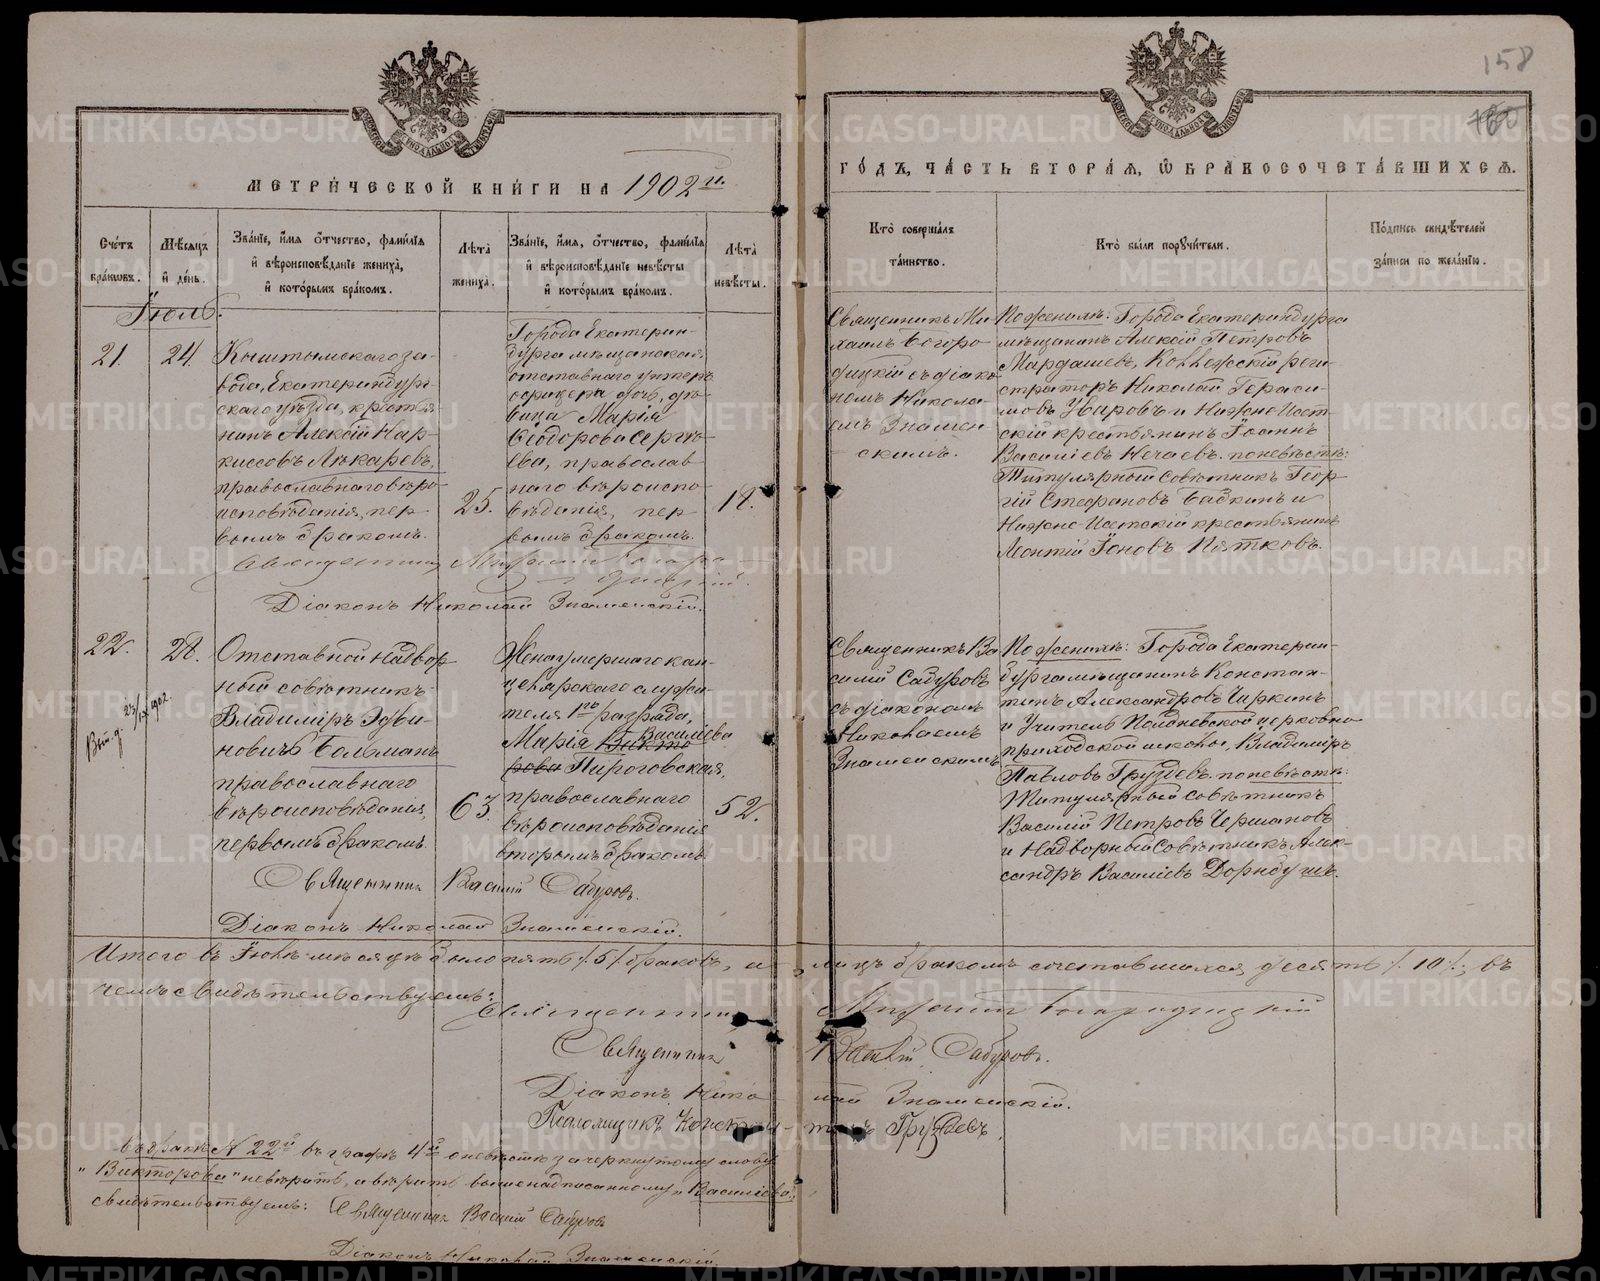 158
МЕТРИ́ЧЕСКОЙ КНИ́ГИ НА 1902й.
ГО́ДЪ, ЧА́СТЬ ВТОРА́Я, Ѽ БРАКОСОЧЕТА́ВШИХСЯ.
Сче́тъ бра́ковъ.
Мѣ́сяцъ и́ де́нь.
Зва́нїе, и́мя ѻ́тчество, фами́лїя и́ вѣроисповѣ́данїе жениха̀, и́ кото́рымъ бра́комъ.
Лѣ́та жениха̀.
Зва́нїе, и́мя, ѻ́тчество, фами́лїя и́ вѣроисповѣ́данїе невѣ́сты и́ кото́рымъ бра́комъ.
Лѣ́та невѣ́сты.
Кто̀ соверша́лъ та́инство.
Кто̀ бы́ли поручи́тели.
По́дпись свидѣ́телей за́писи по жела́нїю.
Іюль.
21.
24.
Кыштымскаго за-
вода, Екатеринбург-
скаго уѣзда, крестья-
нинъ Алексій Нар-
киссовъ Лѣкаревъ,
православнаго вѣро-
исповѣданія, пер-
вымъ бракомъ.
25.
Города Екатерин-
бурга мѣщанская
отставнаго унтеръ
офицера дочь, дѣ-
вица Марія
Ѳеодорова Сергѣ-
ева, православ-
наго вѣроиспо-
вѣданія, пер-
вымъ бракомъ.
18.
Священникъ Ми-
хаилъ Богоро-
дицкій съ діако-
номъ Никола-
емъ Знамен-
скимъ.
По женихѣ: Города Екатеринбурга
мѣщанинъ Алексій Петровъ
Мардашевъ, Коллежскій реги-
страторъ Николай Гераси-
мовъ Уваровъ и Нижне-Исет-
скій крестьянинъ Іоаннъ
Василіевъ Нечаевъ. по невѣстѣ:
Титулярный Совѣтникъ Геор-
гій Стефановъ Бабкинъ и
Нижне-Исетскій крестьянинъ
Леонтій Іоновъ Пятковъ.
Священникъ Михаилъ Богоро-
дицкій.
Діаконъ Николай Знаменскій.
22.
28.
Отставной Надвор-
ный совѣтникъ
Владиміръ Эдви-
новичъ Больманъ
православнаго
вѣроисповѣданія,
первымъ бракомъ.
63.
Жена умершаго кан-
целярскаго служи-
теля 1го разряда,
Василіева
Марія Викто-
рова Пироговская,
православнаго
вѣроисповѣданія
вторымъ бракомъ.
52.
Священникъ Ва-
силій Сабуровъ
съ діакономъ
Николаемъ
Знаменскимъ
По женихѣ: Города Екатерин-
бурга мѣщанинъ Констан-
тинъ Александровъ Чиркинъ
и Учитель Полдневской церковно-
приходской школы, Владиміръ
Павловъ Груздевъ. по невѣстѣ:
Титулярный совѣтникъ
Василій Петровъ Иршановъ
и Надворный Совѣтникъ Алек-
сандръ Василіевъ Дорнбушъ.
Священникъ Василій Сабуровъ.
Діаконъ Николай Знаменскій.
Итого въ Іюлѣ мѣсяцѣ было пять /.5/. браковъ, а лицъ бракомъ сочетавшихся десять /.10/., въ
чемъ свидѣтельствуемъ:
Священникъ Михаилъ Богородицкій
Священникъ Василій Сабуровъ.
Діаконъ Николай Знаменскій.
Псаломщикъ Константинъ Груздевъ.
Въ бракѣ N 22й въ графѣ 4й о невѣстѣ зачеркнутому слову
"Викторова" не вѣрить, а вѣрить выше надписанному "Василіева",
свидѣтельствуемъ: Священникъ Василій Сабуровъ
Діаконъ Николай Знаменскій.
METRIKI.GASO-URAL.RU